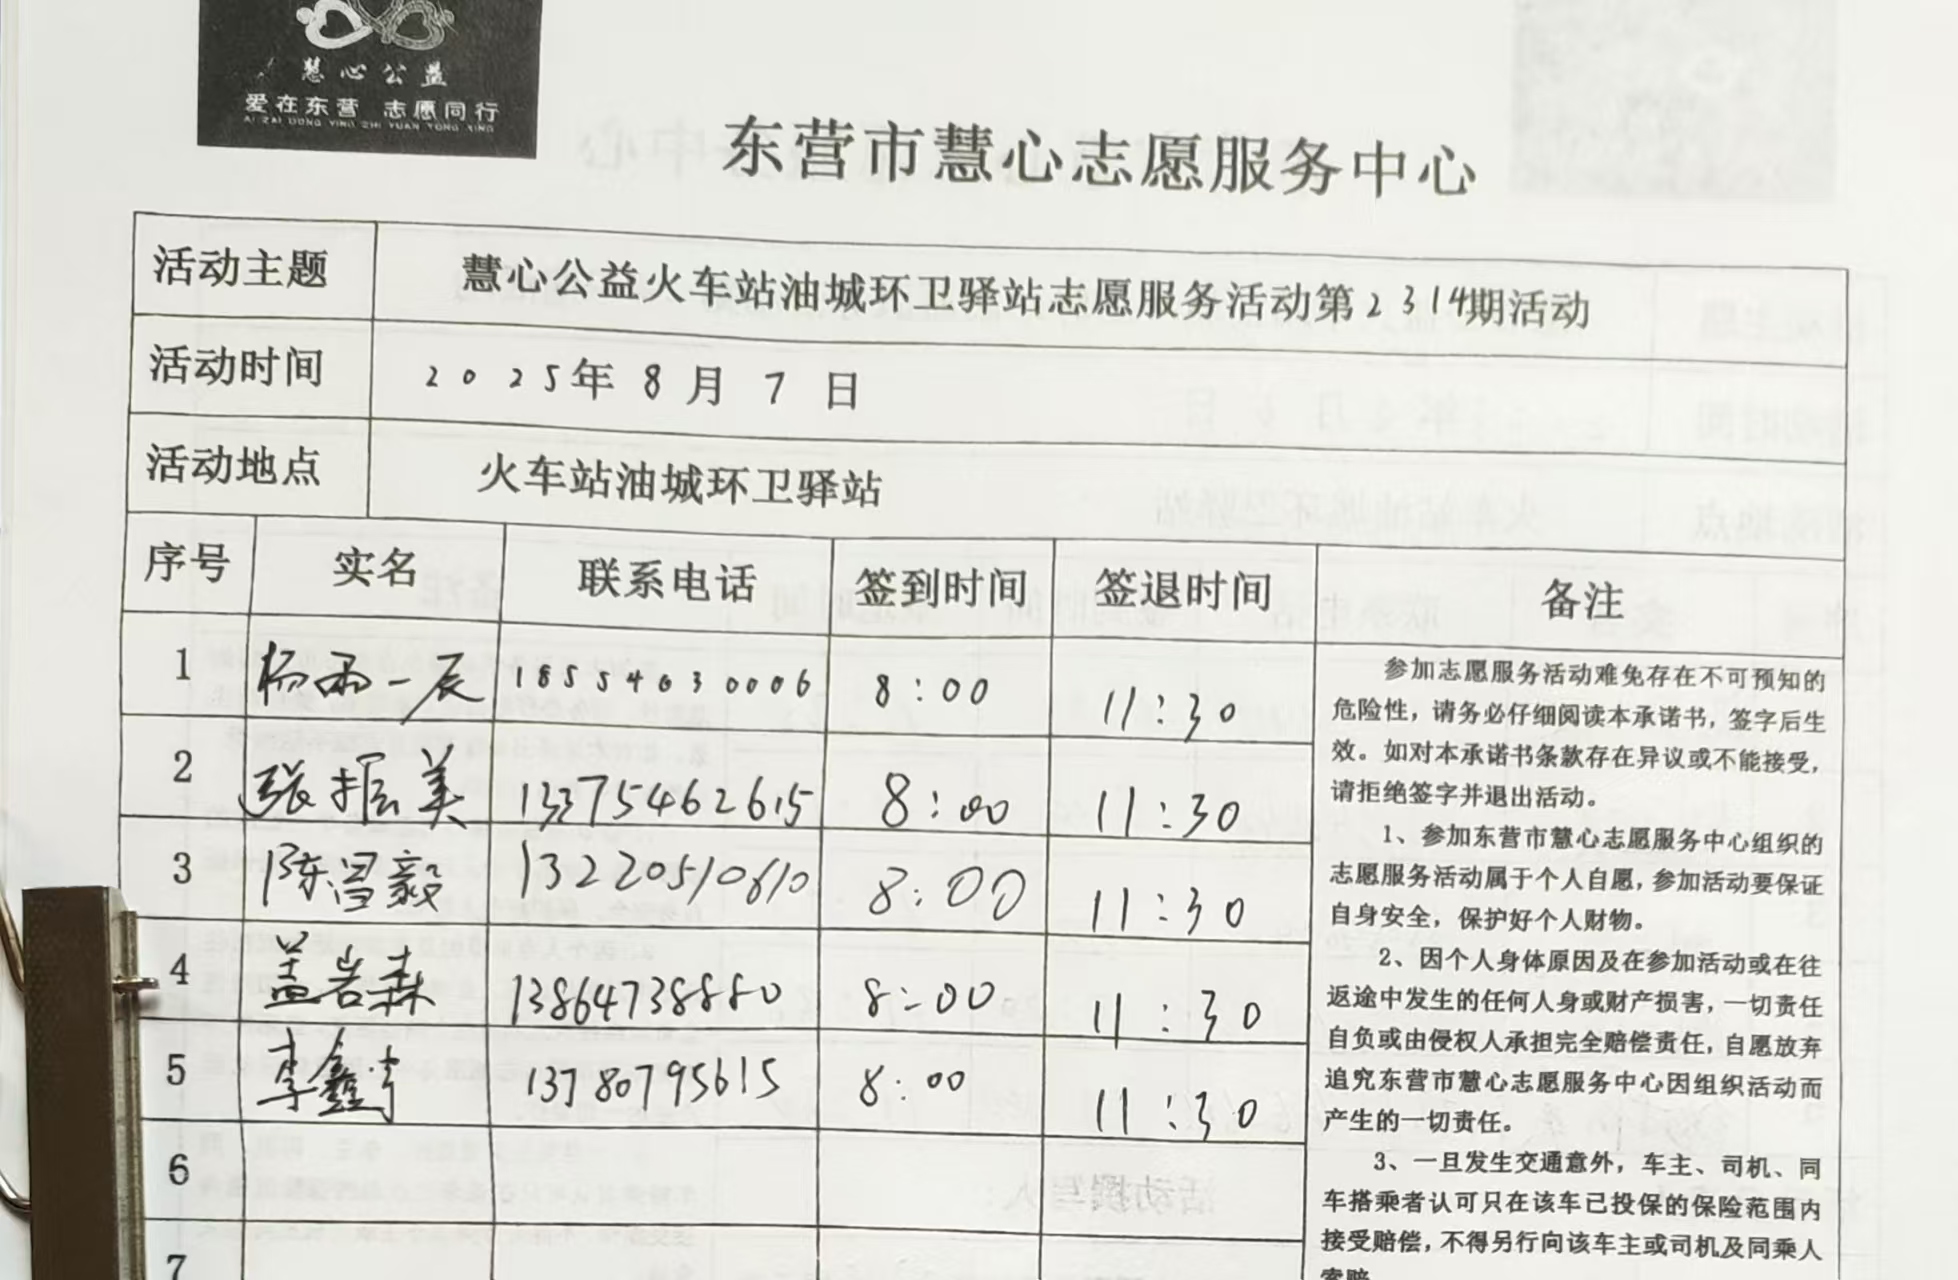 慧心公益
爱在东营 志愿同行
AI ZAI DONG YING ZHI YUAN TONG XING
东营市慧心志愿服务中心
活动主题 慧心公益火车站油城环卫驿站志愿服务活动第2314期活动
活动时间 2025年8月7日
活动地点 火车站油城环卫驿站
序号 实名 联系电话 签到时间 签退时间 备注
1 杨雨一辰 18554630006 8:00 11:30
2 张振美 13375462615 8:00 11:30
3 陈昌毅 13220510610 8:00 11:30
4 盖岩森 13864738880 8:00 11:30
5 李鑫 13780795615 8:00 11:30
6
7
参加志愿服务活动难免存在不可预知的
危险性，请务必仔细阅读本承诺书，签字后生
效。如对本承诺书条款存在异议或不能接受，
请拒绝签字并退出活动。
1、参加东营市慧心志愿服务中心组织的
志愿服务活动属于个人自愿，参加活动要保证
自身安全，保护好个人财物。
2、因个人身体原因及在参加活动或在往
返途中发生的任何人身或财产损害，一切责任
自负或由侵权人承担完全赔偿责任，自愿放弃
追究东营市慧心志愿服务中心因组织活动而
产生的一切责任。
3、一旦发生交通意外，车主、司机、同
车搭乘者认可只在该车已投保的保险范围内
接受赔偿，不得另行向该车主或司机及同乘人
索赔